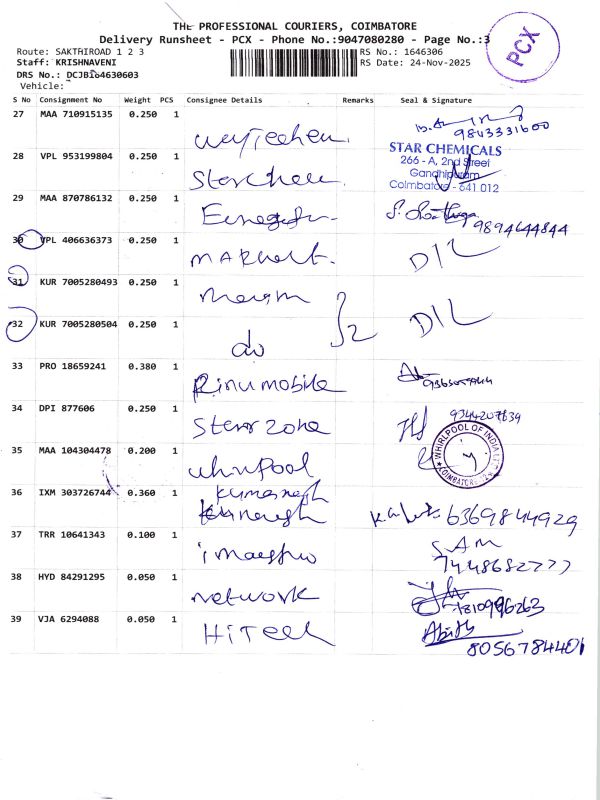 THE PROFESSIONAL COURIERS, COIMBATORE
Delivery Runsheet - PCX - Phone No.:9047080280 - Page No.:3
PCX
Route: SAKTHIROAD 1 2 3
RS No.: 1646306
Staff: KRISHNAVENI
RS Date: 24-Nov-2025
DRS No.: DCJB164630603
Vehicle:
S No Consignment No Weight PCS Consignee Details Remarks Seal & Signature
27 MAA 710915135 0.250 1
9843331600
28 VPL 953199804 0.250 1 Starchem
STAR CHEMICALS
266 - A, 2nd Street
Gandhipuram
Coimbatore - 641 012
29 MAA 870786132 0.250 1
9894644844
30 VPL 406636373 0.250 1 D/L
31 KUR 7005280493 0.250 1
2 D/L
32 KUR 7005280504 0.250 1 do
33 PRO 18659241 0.380 1 Rinu mobile
34 DPI 877606 0.250 1 Star zone
9344207839
35 MAA 104304478 0.200 1 whirlpool
WHIRLPOOL OF INDIA LTD
COIMBATORE-12
36 IXM 303726744 0.360 1 6369844929
37 TRR 10641343 0.100 1 imaestro
SAM
7448682777
38 HYD 84291295 0.050 1 network
39 VJA 6294088 0.050 1 HiTech
8056784401